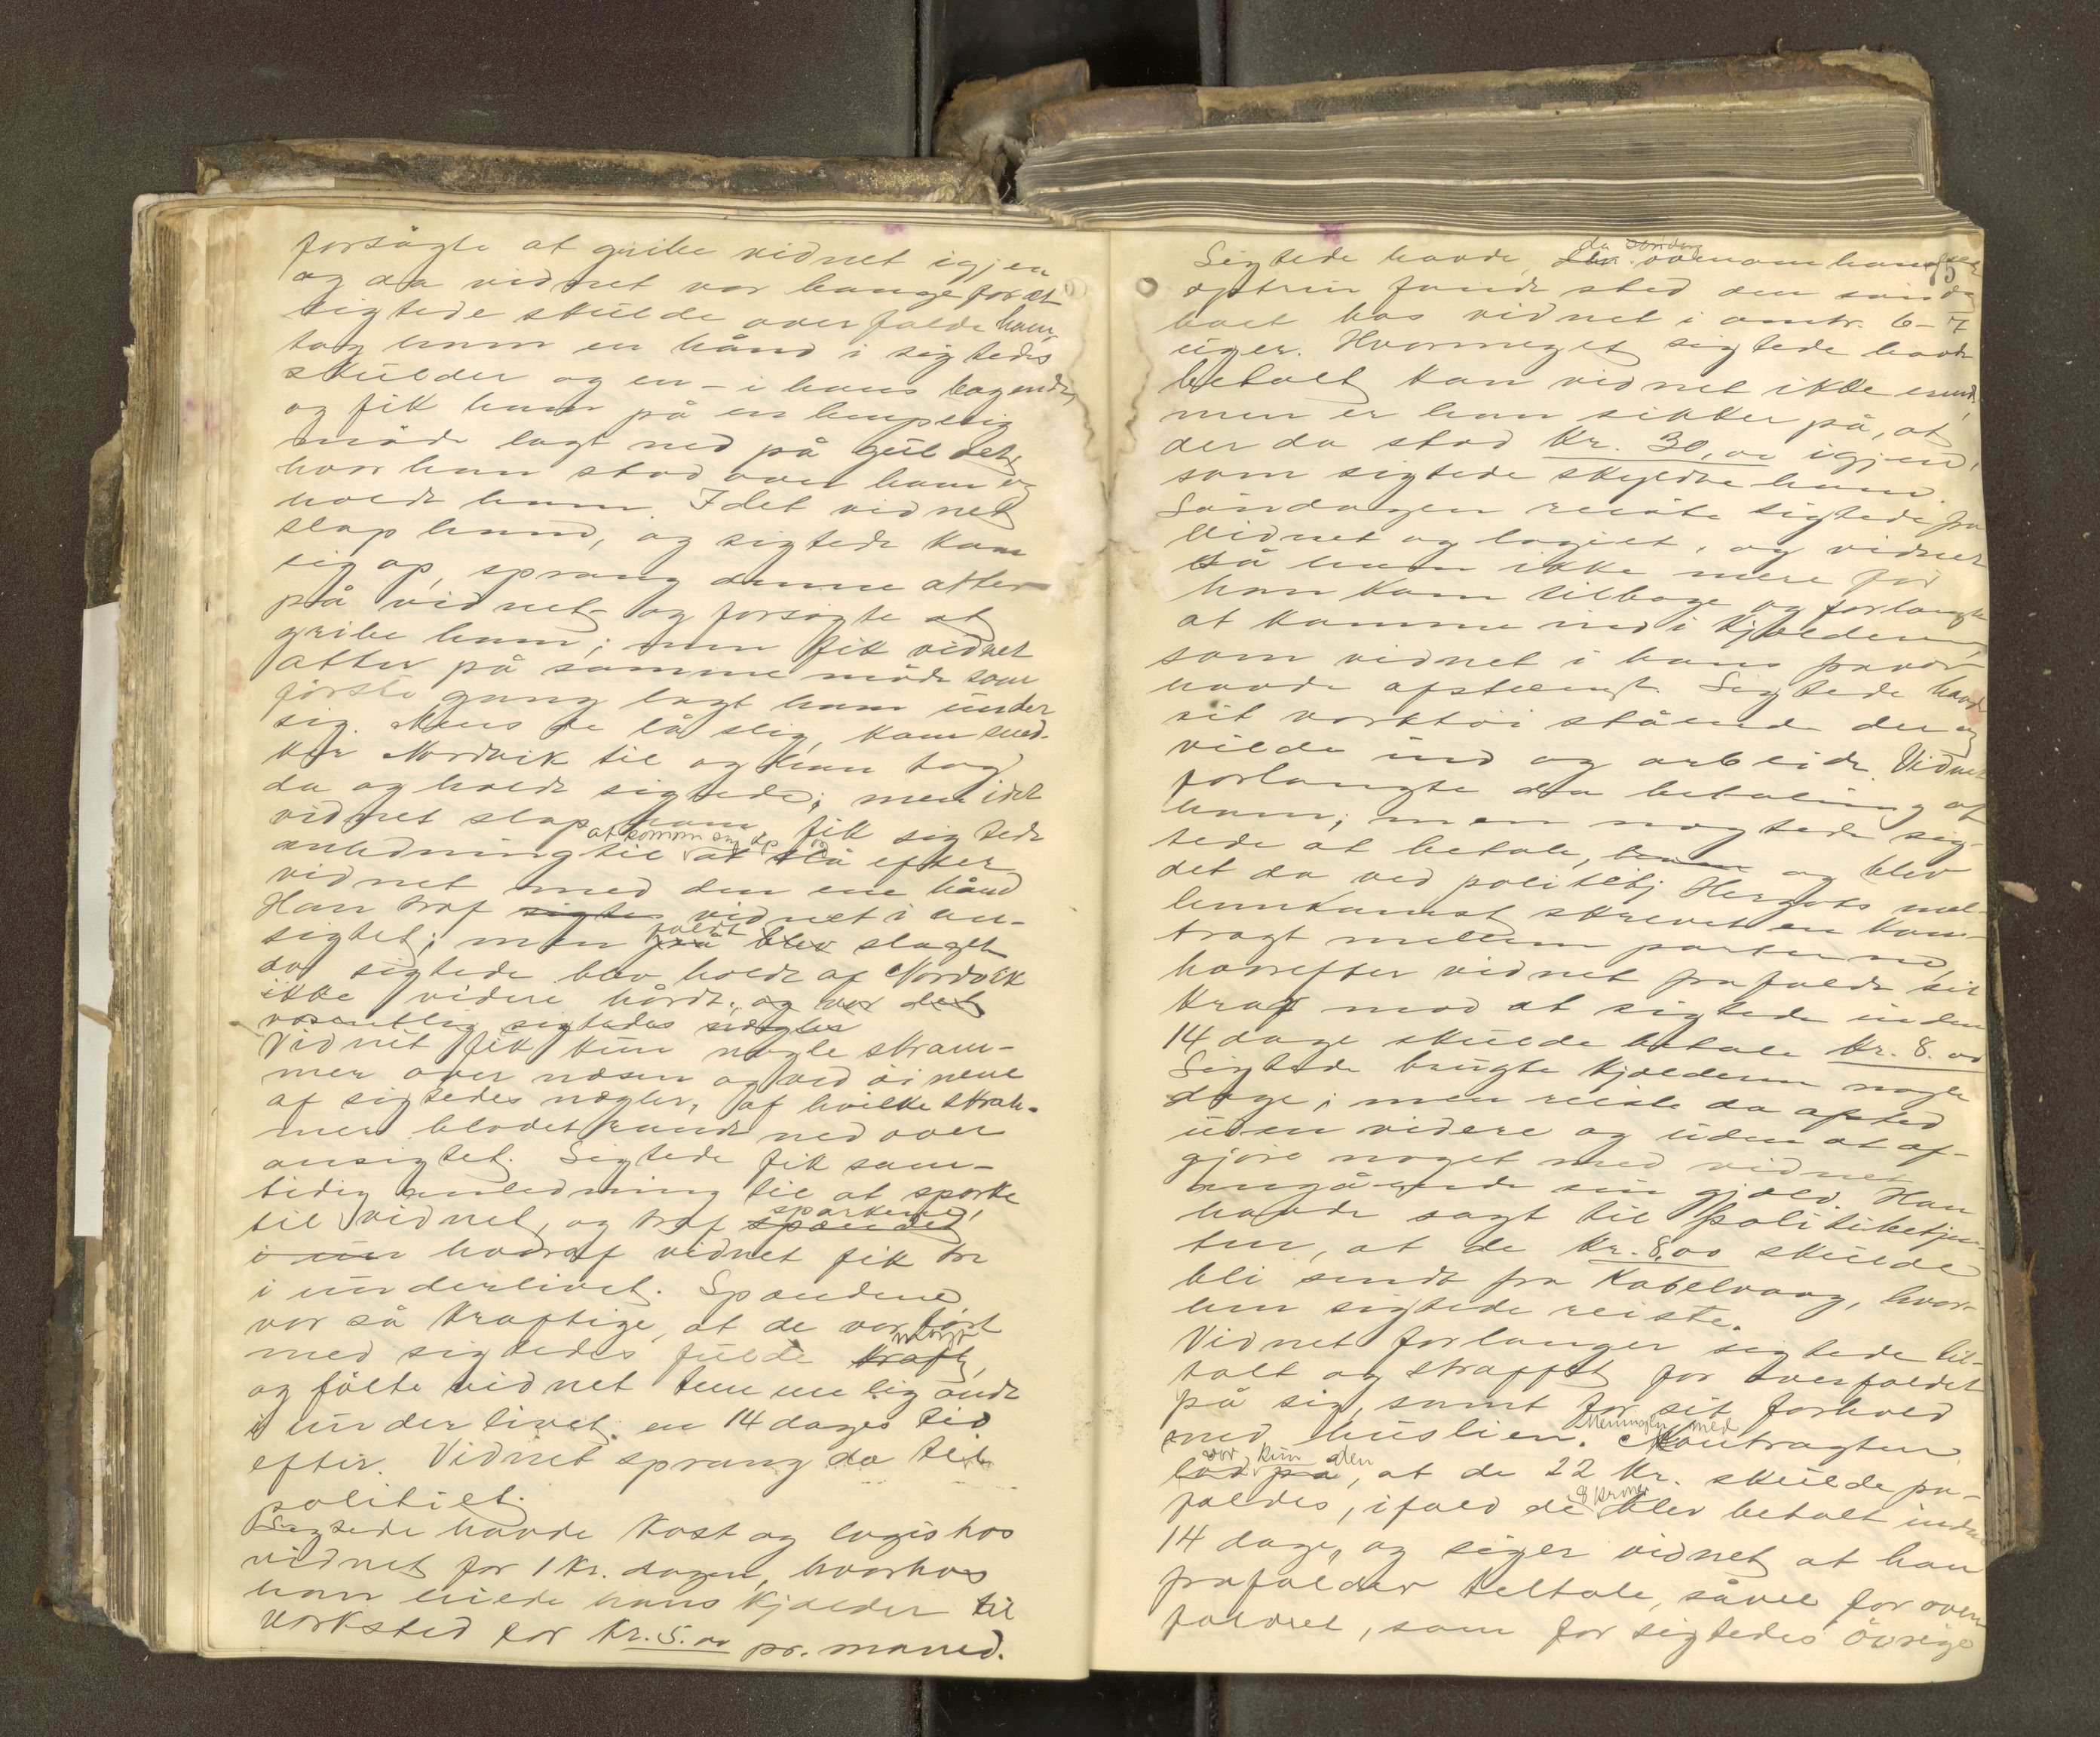 forsøgte at gribe vidnet igjen
og da vidnet var bange for at
sigtede skulde overfalde ham,
tog ham en hånd i sigtedes
skulder og en – i hans bagende,
og fik ham på en lempelig
måde lagt ned på gulvet,
hvor han stod over ham og
holdt ham. Idet vidnet
slap ham, og sigtede kom
sig op, sprang denne atter
på vidnet og forsøgte at
gribe ham; men fik vidnet
atter på samme måde som
første gang lagt ham under
sig. Mens de lå slig, kom sned-
ker Nordvik til og han tog
da og holdt sigtede; men idet
vidnet slap ham fik sigtede
anledning til at komme sig op og at slå efter
vidnet med den ene hånd
Han traf sigte vidnet i an-
sigtet; men faldt blev slaget
da sigtede blev holdt af Nordvik
ikke videre hårdt, og var det
væsentlig sigtedes nægles
Vidnet fik kun nogle skram-
mer over næsen og ved øinene
af sigtedes nægler, af hvilke skram-
mer blodet randt ned over
ansigtet. Sigtede fik sam-
tidig anledning til at sparke
til vidnet, og traf sparkene, spændet
i un hvoraf vidnet fik tre
i underlivet. Spændene
var så kraftige, at de var ført
med sigtedes fulde kraft,
og følte vidnet temmelig ondt
i underlivet en 14 dages tid
efter. Vidnet sprang da til
politiet.
Sigtede havde kost og logis hos
vidnet for 1 kr. dagen, hvorhos
han leiede hans kjælder til
verksted for kr. 5.00 pr. maaned.
Sigtede havde, da ovennævnte
optrin fandt sted den
boet hos vidnet i omtr. 6–7
uger. Hvormeget sigtede havde
betalt kan vidnet ikke erindre,
men er han sikker på, at
der da stod kr. 30,00 igjen,
som sigtede skyldte ham.
Søndagen reiste sigtede fra
vidnet og logiet, og vidnet
så ham ikke mere før
han kom tilbage og forlangte
at komme ind i kjælderen,
som vidnet i hans fravær
havde afstængt. Sigtede havde
sit værktøi stående der og
vilde ind og arbeide. Vidnet
forlangte da betaling af
ham; men nægtede sig-
tede at betale, ham og blev
det da ved politibtj. Hergots mel-
lemkomst skrevet en kon-
tragt mellem parterne,
hvorefter vidnet frafaldt sit
krav mod at sigtede inden
14 dage skulde betale kr. 8.00
Sigtede brugte kjælderen nogle
dage; men reiste da afsted
uden videre og uden at af-
gjøre noget med vidnet
angående sin gjæld. Han
havde sagt til politibetjen-
ten, at de kr. 8,00 skulde
bli sendt fra Kabelvaag, hvor-
hen sigtede reiste.
Vidnet forlanger sigtede til-
talt og straffet for overfaldet
på sig, samt for sit forhold
med huslien. Meningen med Kontragten
var kun den lød på, at de 22 kr. skulde fra-
faldes, ifald de 8 kroner blev betalt inden
14 dage, og siger vidnet at han
frafalder tiltale, såvel for over-
faldet, som for sigtedes øvrige